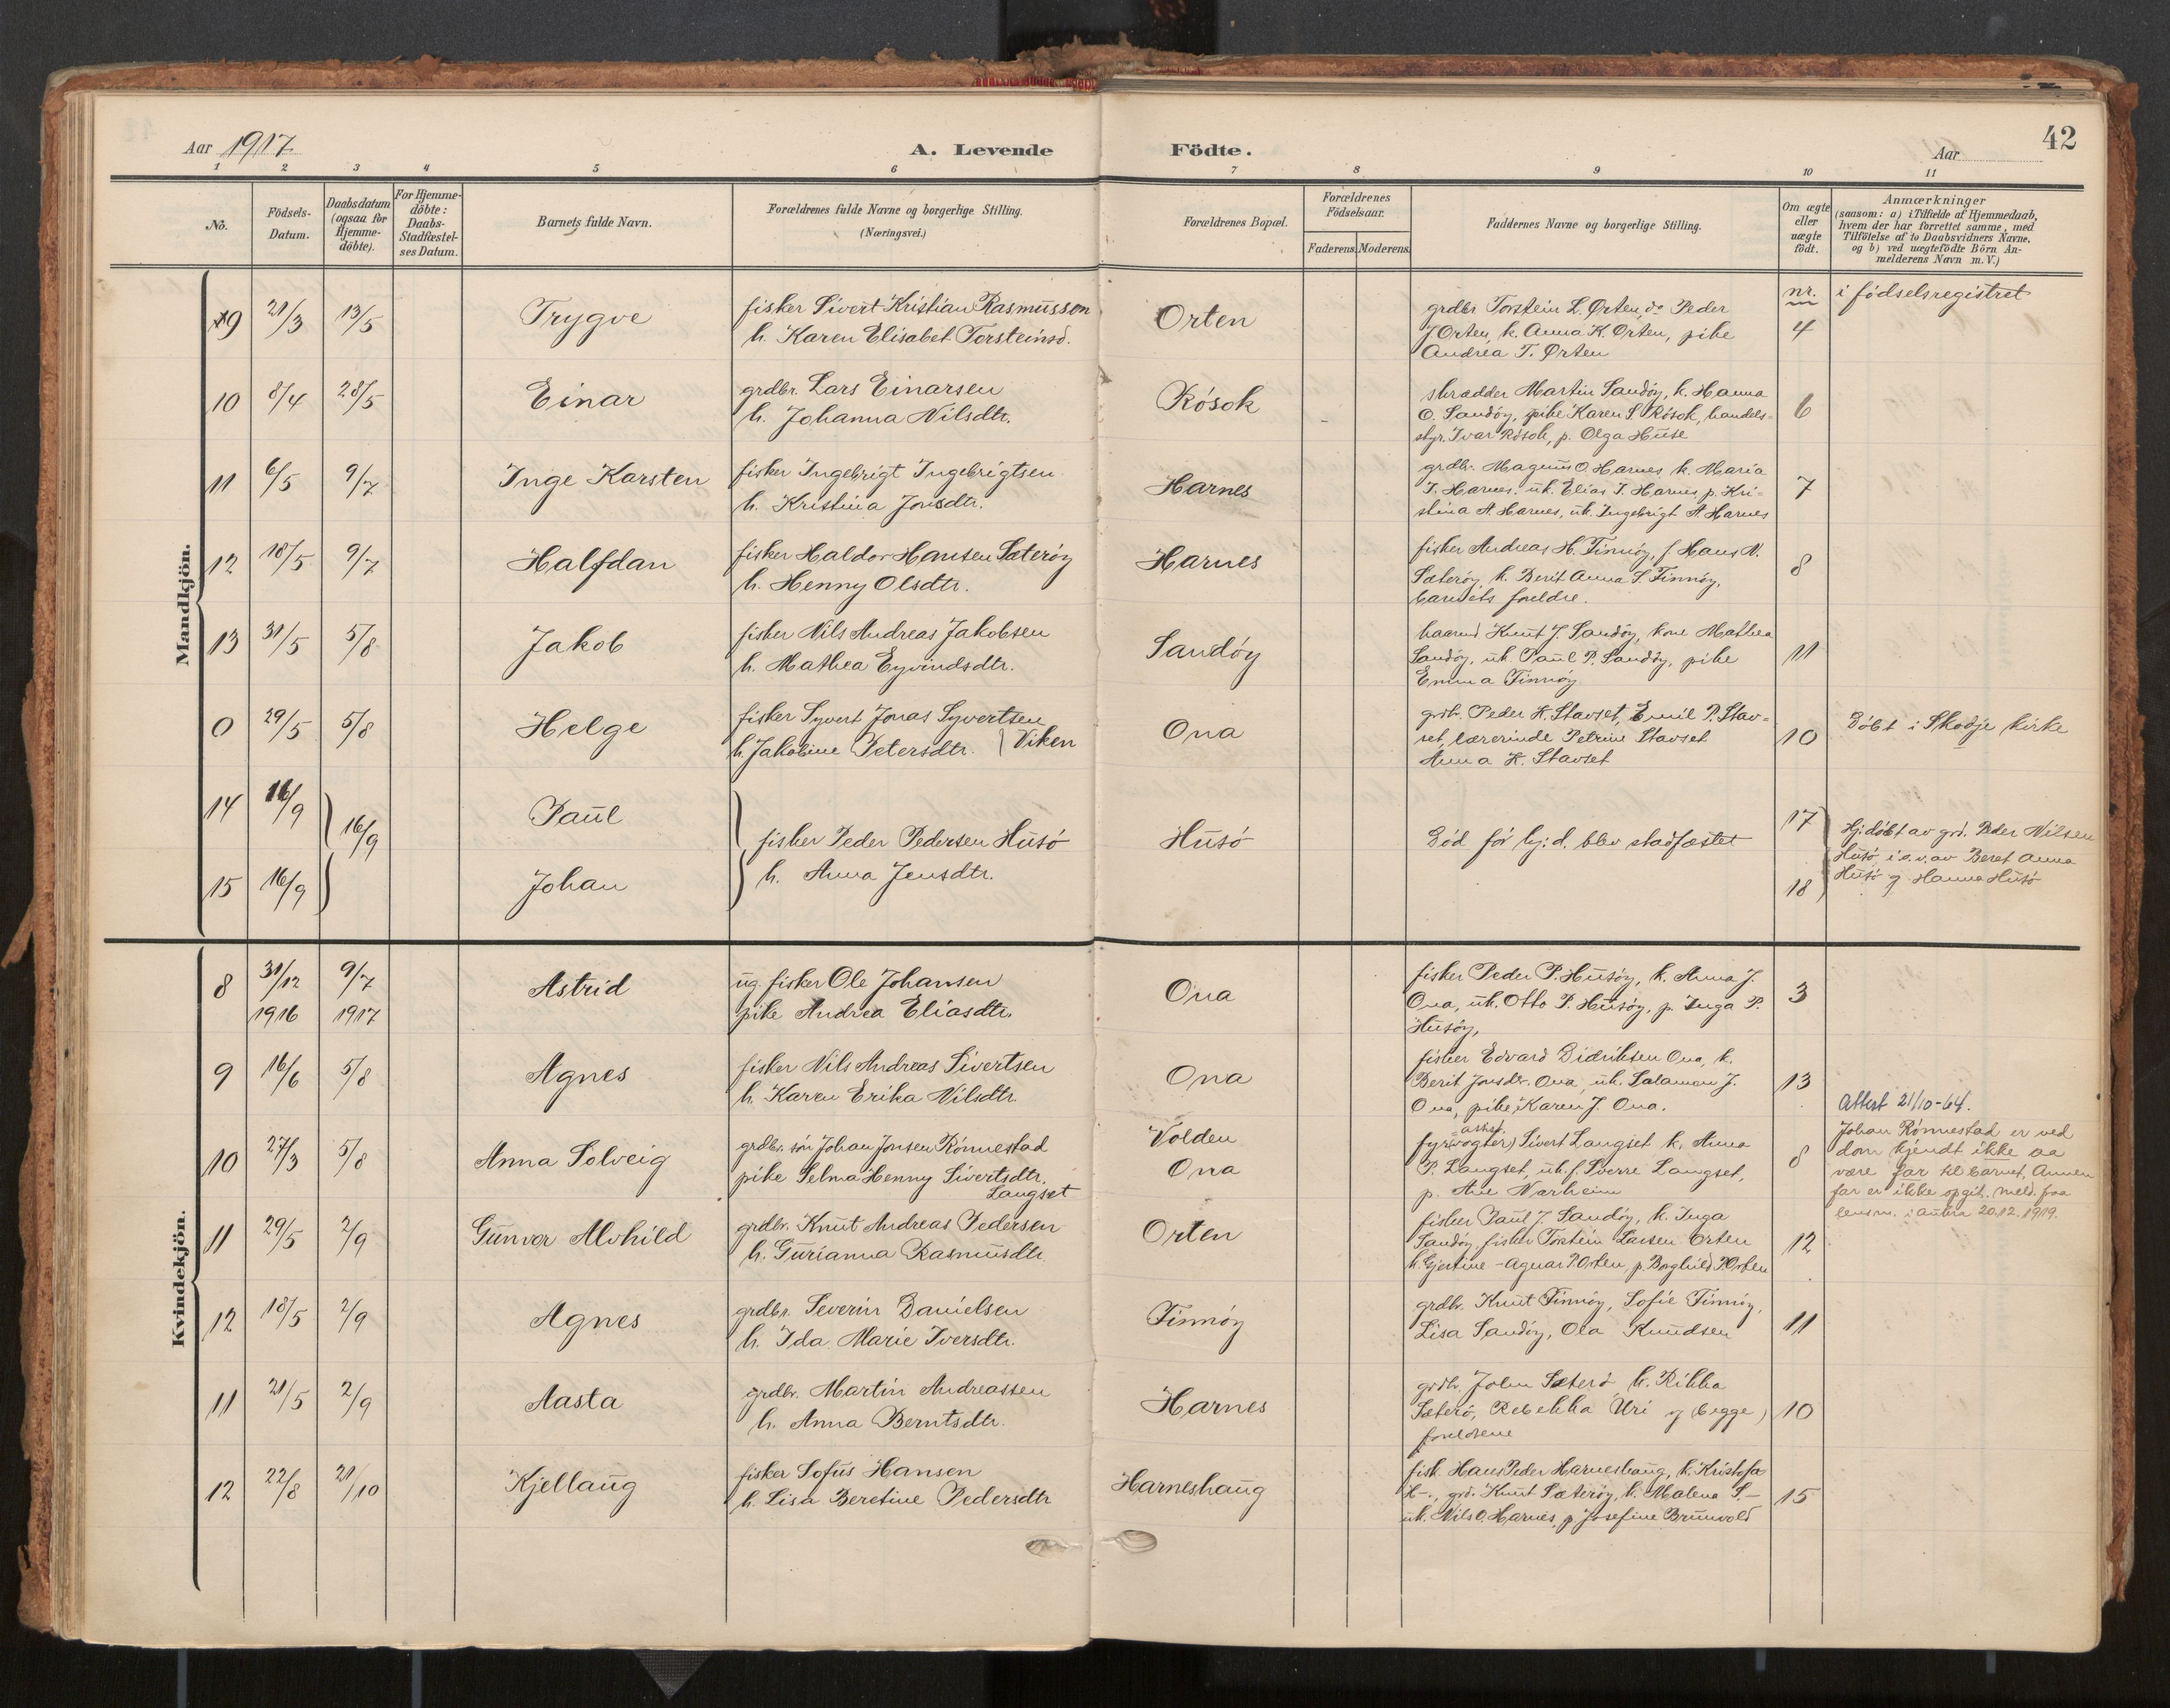 Aar 1917
A. Levende Födte.
Aar
42
1 2 3 4 5 6 7 8 9 10 11
No.
Födsels-Datum.
Daabsdatum (ogsaa for Hjemme-döbte).
For Hjemme-döbte: Daabs-Stadfæstel-ses Datum.
Barnets fulde Navn.
Forældrenes fulde Navne og borgerlige Stilling. (Næringsvei.)
Forældrenes Bopæl.
Forældrenes Födselsaar.
Faderens. Moderens.
Faddernes Navne og borgerlige Stilling.
Om ægte eller uægte födt.
Anmærkninger
(saasom: a) i Tilfælde af Hjemmedaab,
hvem der har forrettet samme, med
Tilföielse af to Daabsvidners Navne,
og b) ved uægtefödte Börn An-
melderens Navn m. V.)
Mandkjön.
nr. i födselsregistret
9 21/3 13/5 Trygve
fisker Sivert Kristian Rasmussen
h. Karen Elisabet Torsteinsd.
Orten
grdbr Torstein L. Örten, do Peder
J Orten, k. Anna K. Orten, pike
Andrea T. Örten
4
10 8/4 28/5 Einar
grdbr. Lars Einarsen
h. Johanna Nilsdtr.
Rösok
skrædder Martin Sandöy, k. Hanna
O. Sandöy, pike Karen S. Rösok, handels-
styr. Ivar Rösok, p. Olga Huse
6
11 6/5 9/7 Inge Karsten
fisker Ingebrigt Ingebrigtsen
h. Kristina Jonsdtr.
Harnes
grdbr. Magnus O. Harnes k. Maria
I. Harnes, uk. Elias I. Harnes p. Kri-
stina A. Harnes, uk. Ingebrigt A. Harnes
7
12 18/5 9/7 Halfdan
fisker Haldor Hansen Sæteröy
h. Henny Olsdtr.
Harnes
fisker Andreas H. Finnöy, f. Hans N.
Sæteröy, k. Berit Anna S. Finnöy,
barnets foreldre.
8
13 31/5 5/8 Jakob
fisker Nils Andreas Jakobsen
h. Mathea Eyvindsdtr.
Sandöy
Knut J. Sandöy, kone Mathea
Sandöy, uk. Paul P. Sandöy, pike
Emma Finnöy
11
0 29/5 5/8 Helge
fisker Syvert Jonas Syvertsen
h. Jakobine Petersdtr. } Viken
Ona
grdb. Peder K. Stavset, Emil P. Stav-
set, lærerinde Petrine Stavset
Anna K. Stavset
10
Döbt i Skodje kirke
14 16/9 Paul
16/9
fisker Peder Pedersen Husö
h. Anna Jensdtr.
Husö
Död för hj:d. blev stadfæstet
17
15 16/9 Johan
18
Hj:döbt av grd. Peder Nilsen
Husö, i o.v. av Beret Anna
Husö og Hanna Husö
Kvindekjön.
8 31/12 1916 9/7 1917 Astrid
ug. fisker Ole Johansen
pike Andrea Eliasdtr.
Ona
fisker Peder P. Husöy, k. Anna J.
Ona, uk. Otto P. Husöy, p. Inga P.
Husöy,
3
9 16/6 5/8 Agnes
fisker Nils Andreas Sivertsen
h. Karen Erika Nilsdtr.
Ona
fisker Edvard Didriksen Ona, k.
Berit Jonsdr. Ona, uk. Salamon J.
Ona, pike Karen J. Ona.
13
Attest 21/10-64.
10 27/3 5/8 Anna Solveig
grdbr. sön Johan Jonsen Rönnestad
pike Selma Henny Sivertsdtr.
Langset
Volden
Ona
fyrvogter) Sivert Langset k. Anna
P. Langset, uk. f. Sverre Langset,
p. Ane Nærheim
8
Johan Rönnestad er ved
dom kjendt ikke aa
være far til barnet, Annen
far er ikke opgit. meld. fra
lensm. i Aukra 20.12.1919.
11 29/5 2/9 Gunvor Alvhild
grdbr. Knut Andreas Pedersen
h. Gurianna Rasmusdtr.
Orten
fisker Paul J. Sandöy, k. Inga
Sandöy, fisker Torstein Larsen Orten
k. Gjertine - Agnar P. Orten, p. Borghild P. Orten
12
12 18/5 2/9 Agnes
grdbr. Severin Danielsen
h. Ida Marie Iversdtr.
Finnöy
grdbr. Knut Finnöy, Sofie Finnöy,
Lisa Sandöy, Ola Knudsen
11
11 21/5 2/9 Aasta
grdbr. Martin Andreassen
h. Anna Berntsdtr.
Harnes
grdb. John Sæterö, k. Rikka
Sæterö, Rebekka Uri og (begge)
foreldrene
10
12 22/8 21/10 Kjellaug
fisker Sofus Hansen
h. Lisa Beretine Pedersdtr
Harneshaug
fisk. Hans Peder Harneshaug, k. Kristofa
H-, grd. Knut Sæteröy, k. Malena S.-
uk. Nils O. Harnes, p Josefine Brunvold
15